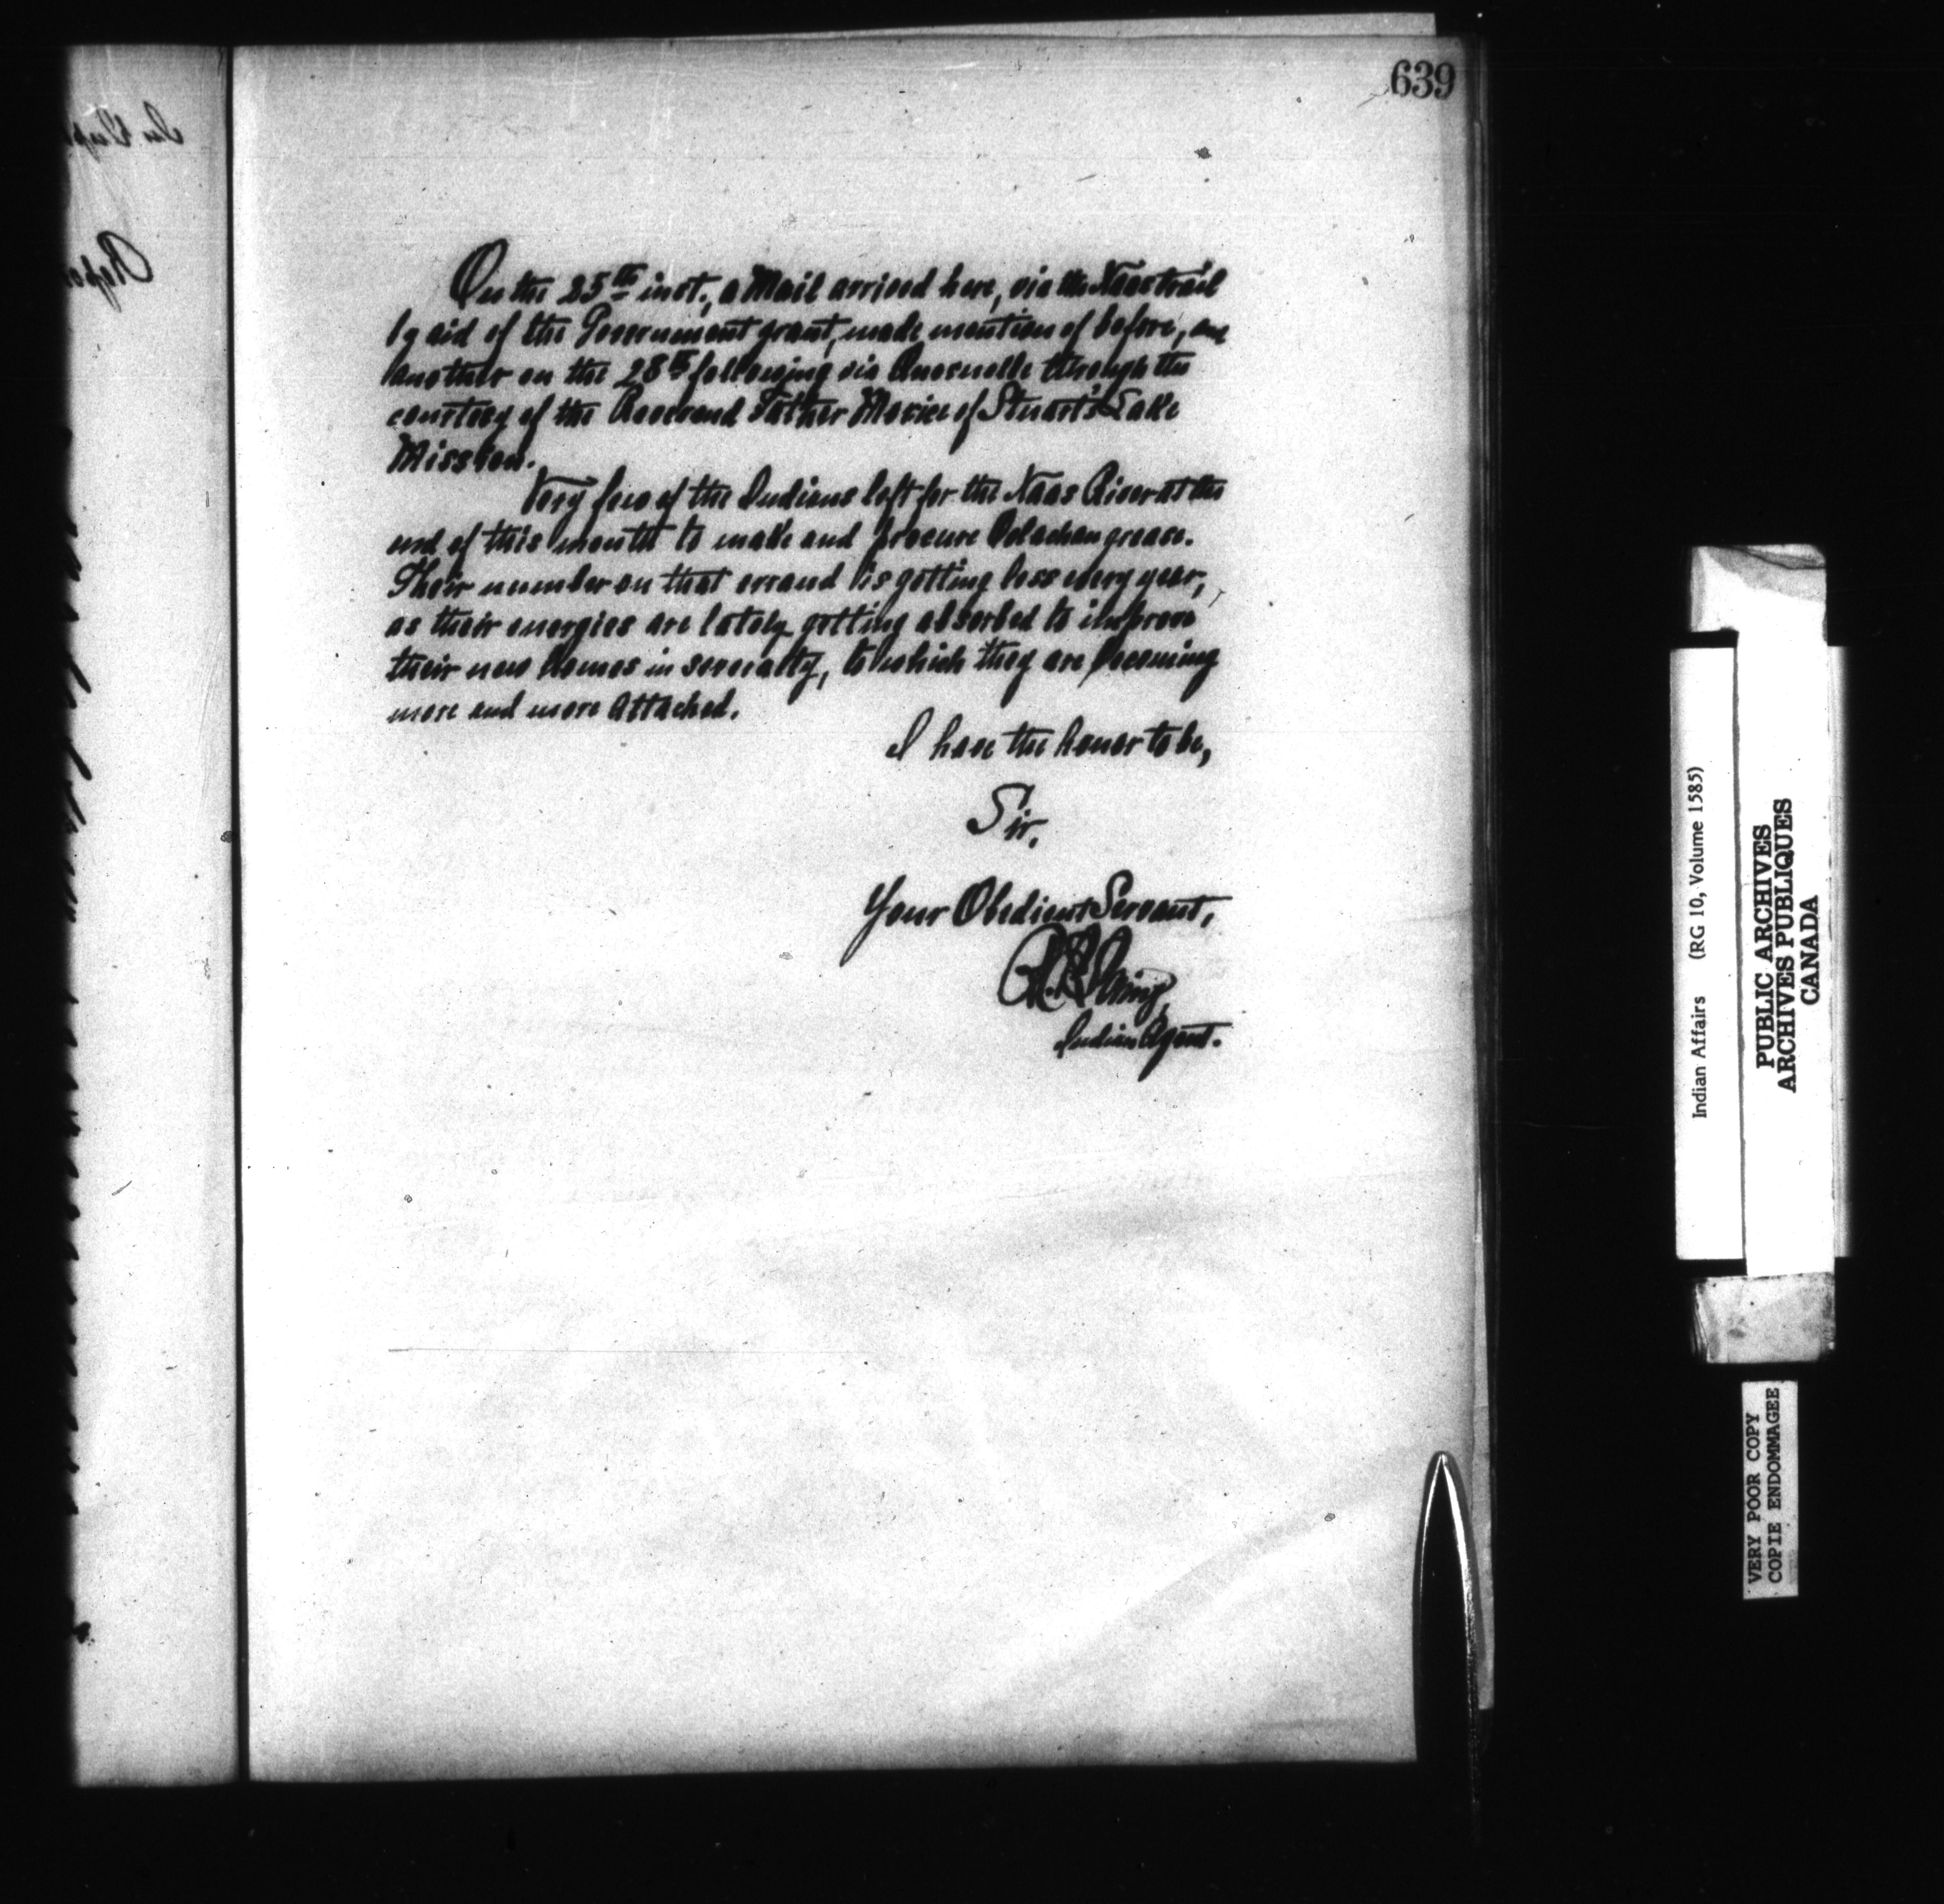 639
On the 25th inst., a Mail arrived here, via the Naas trail
by aid of the Government grant, made mention of before, and
another on the 28th following via Quesnelle through the
courtesy of the Reverend Father Morice of Stuart's Lake
Mission.
Very few of the Indians left for the Naas River at the
end of this month to make and procure Oolachan grease.
Their number on that errand is getting less every year,
as their energies are lately getting absorbed to improve
their new homes in severalty, to which they are becoming
more and more attached.
I have the honor to be,
Sir,
Your Obedient Servant,
R. E. Loring,
Indian Agent.
Indian Affairs (RG 10, Volume 1585)
PUBLIC ARCHIVES
ARCHIVES PUBLIQUES
CANADA
VERY POOR COPY
COPIE ENDOMMAGEE